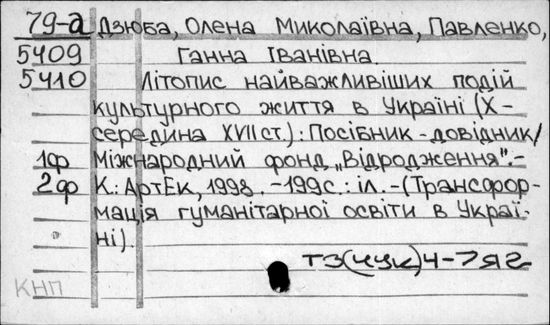 79-а Дзюба, Олена Миколаївна, Павленко,
5409 Ганна Іванівна.
5410 Літопис найважливіших подій
культурного життя в Україні (X-
середина XVII ст.): Посібник-довідник/
1ф Міжнародний фонд „Відродження".-
2ф К.: АртЕк, 1998. -199с.: іл. -(Трансфор-
мація гуманітарної освіти в Украї-
ні).
т3(4УК)4-7я2
КНП